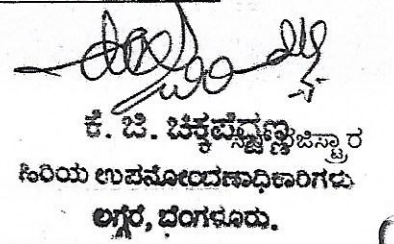 ಕೆ. ಜಿ. ಚಿಕ್ಕಪೆದ್ದಣ್ಣ
ಹಿರಿಯ ಉಪನೋಂದಣಾಧಿಕಾರಿಗಳು
ಲಗ್ಗೆರೆ, ಬೆಂಗಳೂರು.